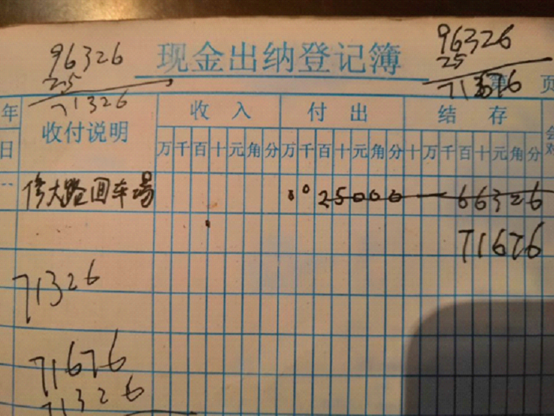 96326
25
71326
现金出纳登记簿
96326
25
年
日
收付说明
收入
付出
结存
页
万千百十元角分
万千百十元角分
十万千百十元角分
修大路回车场 25000 66326
71676
71326
71676
71326